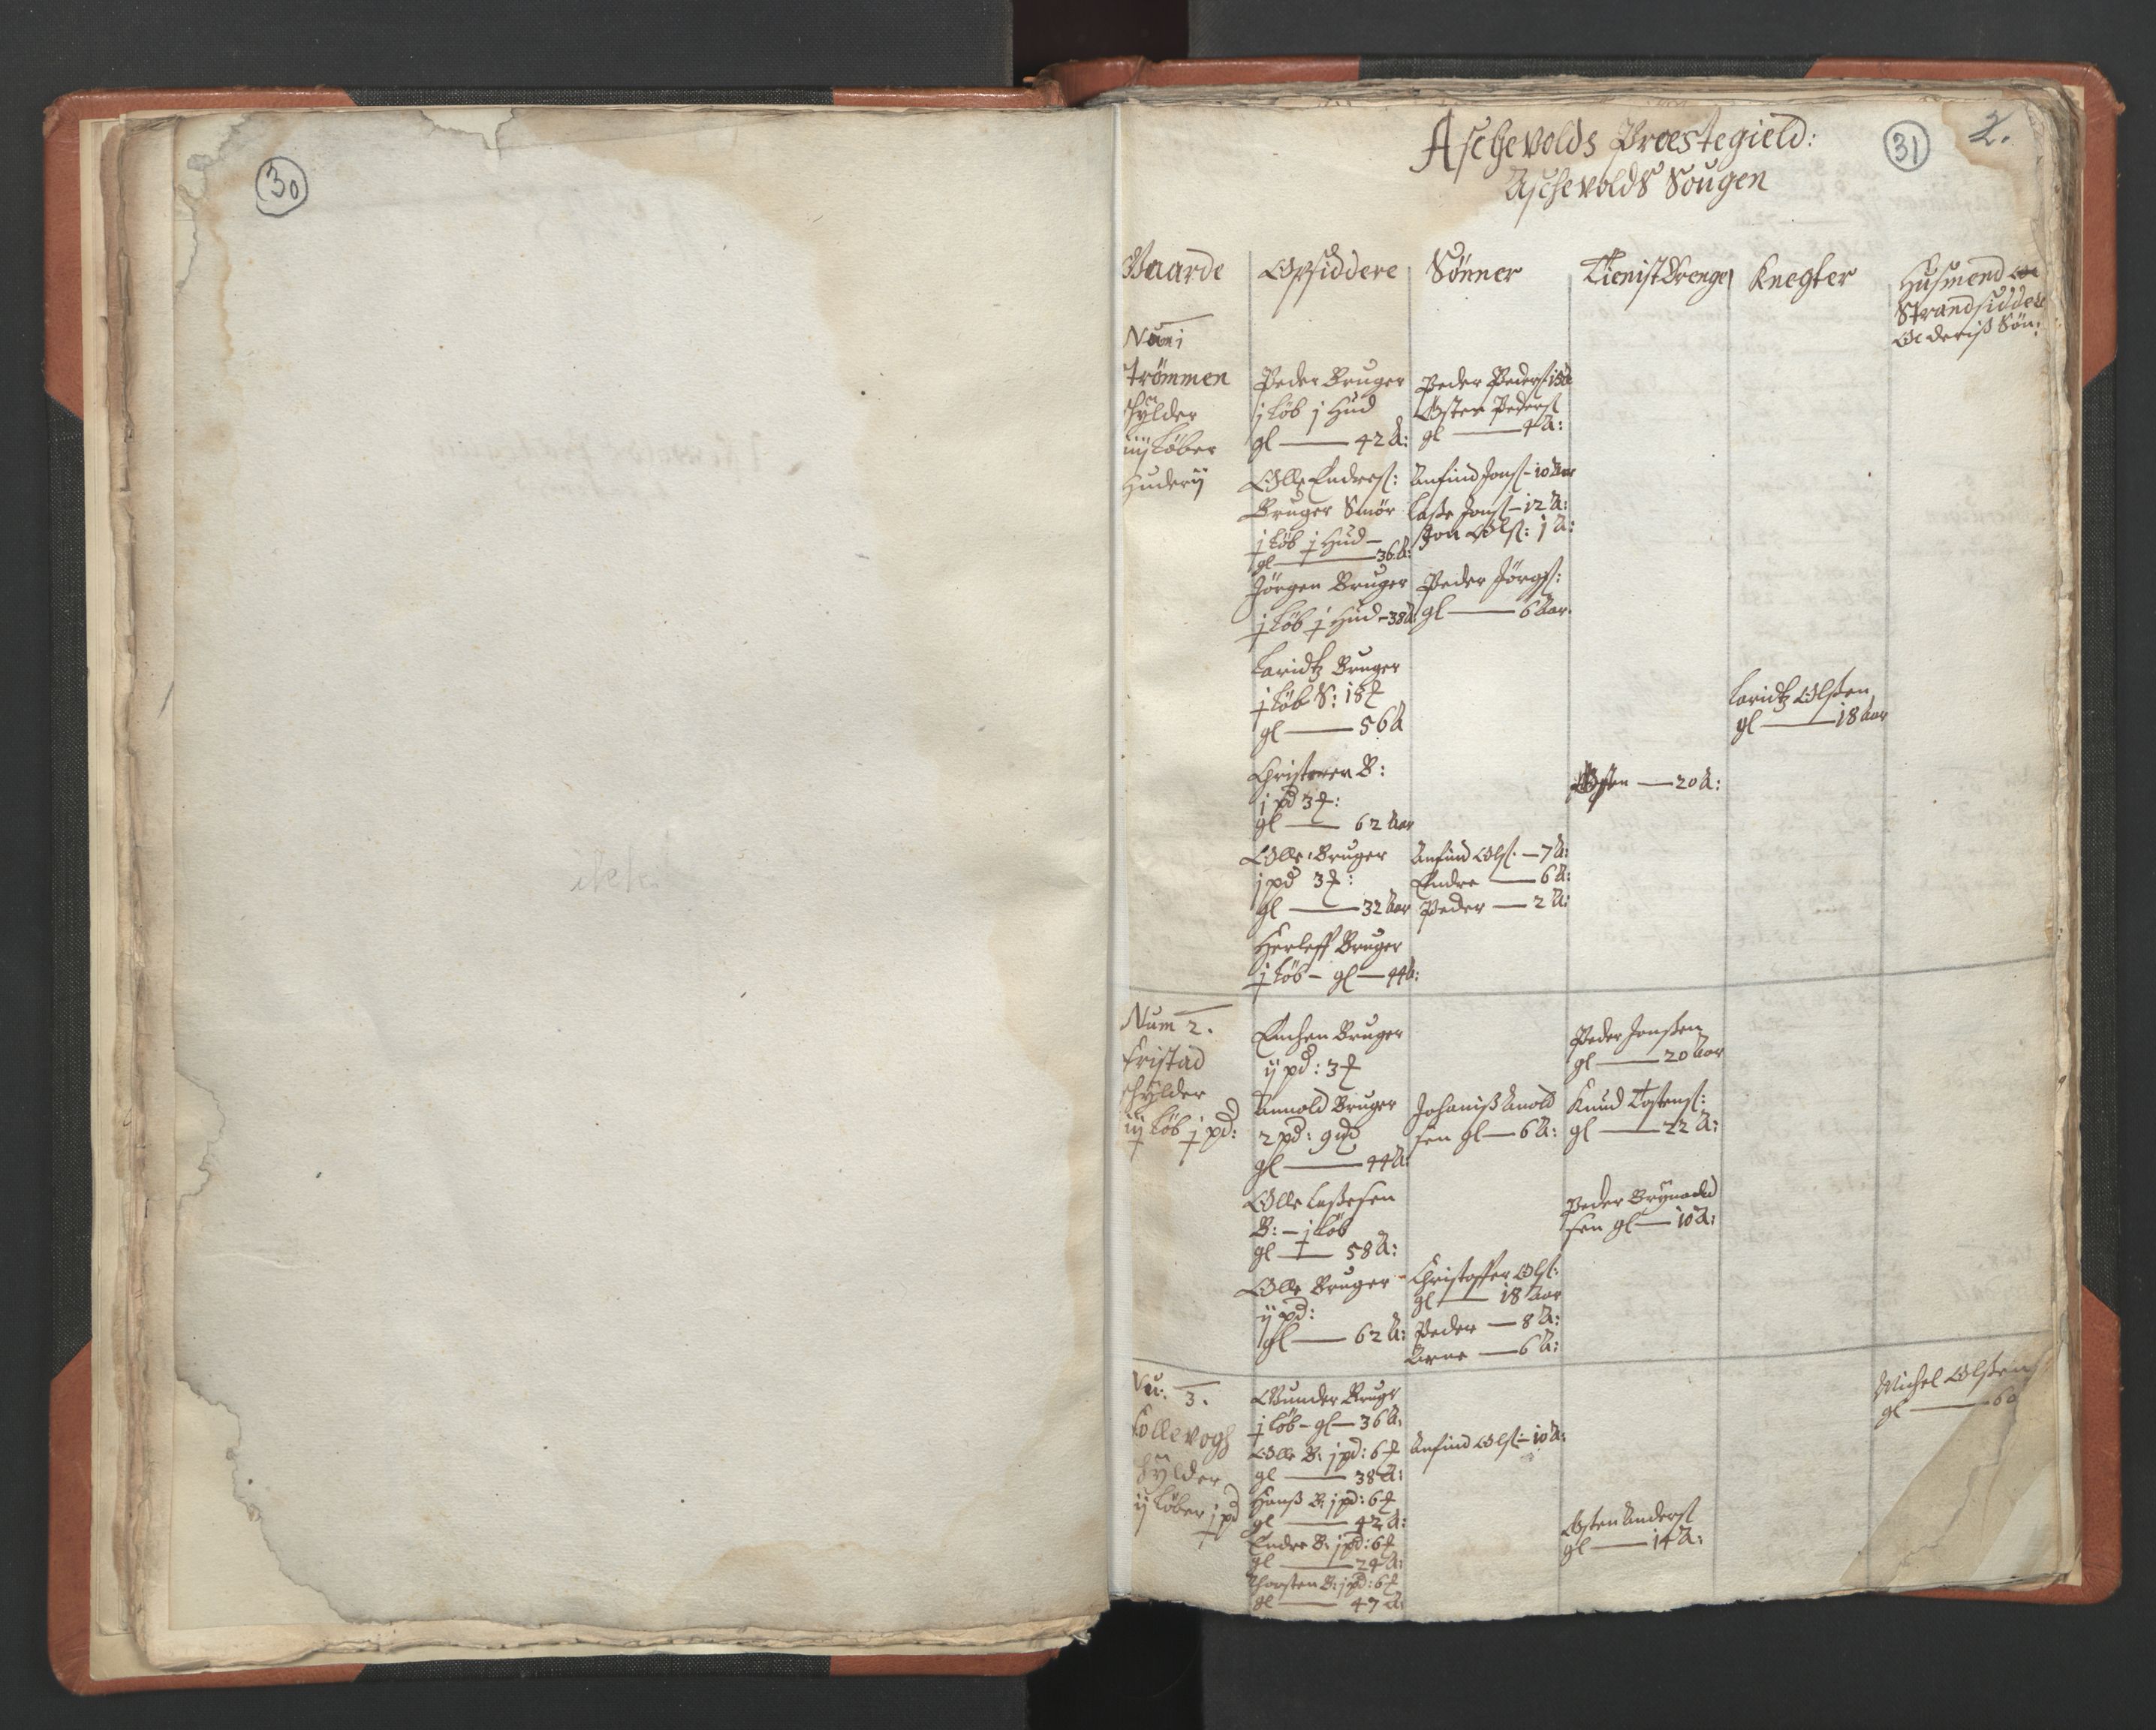 30
31
2.
Aschevolds Præstegield:
Aschevolds Sougen
Gaarde
Opsiddere
Sønner
Tienist Drenge
Knegter
Husmend oc
Strandsidder
Oc deris Søn:
Num 1
Strømmen
schylder
iiij Løber
Huder ij
Peder Bruger
j Løb j Hud
gl — 42 A:
Peder Peders: 18 A
Østen Peders:
gl — 4 A:
Olle Enders:
Bruger Smør
j Løb j Hud —
gl — 36 A:
Anfind Jons: – 10 Aar
Lasse Jons: – 12 A:
Jon Ols: 1 A:
Jørgen Bruger
j Løb j Hud – 38 A:
Peder Jørgs:
gl — 6 Aar
Laridtz Bruger
j Løb S: 18
gl — 56 A
Laridtz Olsen
gl — 18 Aar
B:
j pd 3
gl — 62 Aar
Østen — 20 A:
Olle Bruger
j pd 3
gl — 32 Aar
Anfind Ols: — 7 A:
Endre — 6 A:
Peder — 2 A:
Herleff Bruger
j Løb – gl — 44 A:
Num 2.
Fristad
schylder
iij Løb j pd:
Enchen Bruger
ij pd: 3
Peder Jonsen
gl — 20 Aar
Annold Bruger
2 pd: 9
gl — 44 A:
Johanis Anold
sen gl — 6 A:
Knud Tostens:
gl — 22 A:
Olle Lassesen
B: – j Løb
gl — 58 A:
Peder
sen gl — 10 A:
Olle Bruger
ij pd:
gl — 62 A:
Christoffer Ols:
gl — 18 Aar
Peder — 8 A:
Arne — 6 A:
Nu: 3.
Follevogh
schylder
ij Løber j pd
Gunder Bruger
j Løb – gl — 36 A:
Michel Olsen
gl — 60
Olle B: j pd: 6
gl — 38 A:
Anfind Ols: – 10 A:
Hans B: j pd: 6
gl — 42 A:
Endre B: j pd: 6
gl — 24 A:
Østen Anders:
gl — 14 A:
Thorsten B: j pd: 6
gl — 47 A: